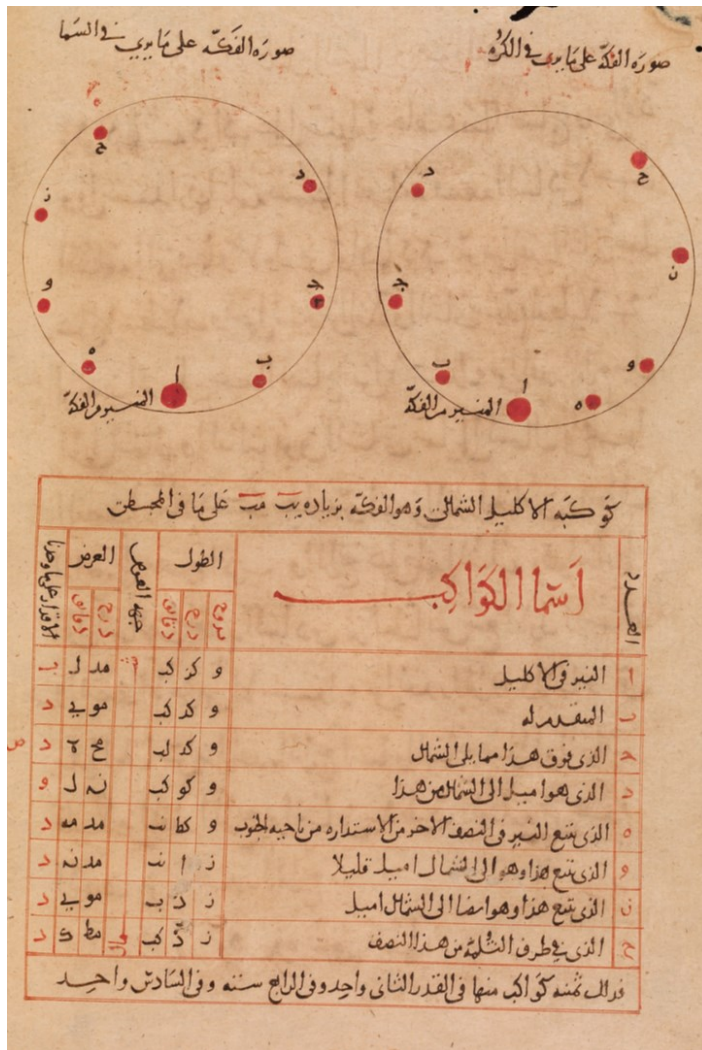 صورة الفكة على ما يرى في الكرة
صورة الفكة على ما يرى في السما
ح
د
ز
و
ه
ا
ب
ج
المنير من الفكة
ح
د
ز
و
ه
ا
ب
ج
المنير من الفكة
كوكبة الاكليل الشمالي وهو الفكة بزياده يب مب على ما في المجسطي
العدد اسما الكواكب الطول جهه العرض العرض الاقدار على ما وجدنا
بروج درج دقائق درج دقائق
ا النير في الاكليل و كز كب مد ل ب
ب المتقدم له و كد كب مو ي د
ج الذي فوق هذا مما يلي الشمال و كد لب مح ه د
د الذي هو اميل الى الشمال من هذا و كو كب ن ل و
ه الذي يتبع النير في النصف الاخر من الاستداره من ناحيه الجنوب و كط نب مد مه د
و الذي يتبع هذا وهو الى الشمال اميل قليلا ز ا نب مد ن د
ز الذي يتبع هذا وهو ايضا الى الشمال اميل ز د ب مو ي د
ح الذي في طرف الثلمة من هذا النصف ز د كب مط ك د
فذلك ثمنيه كواكب منها في القدر الثاني واحد وفي الرابع سته وفي السادس واحد